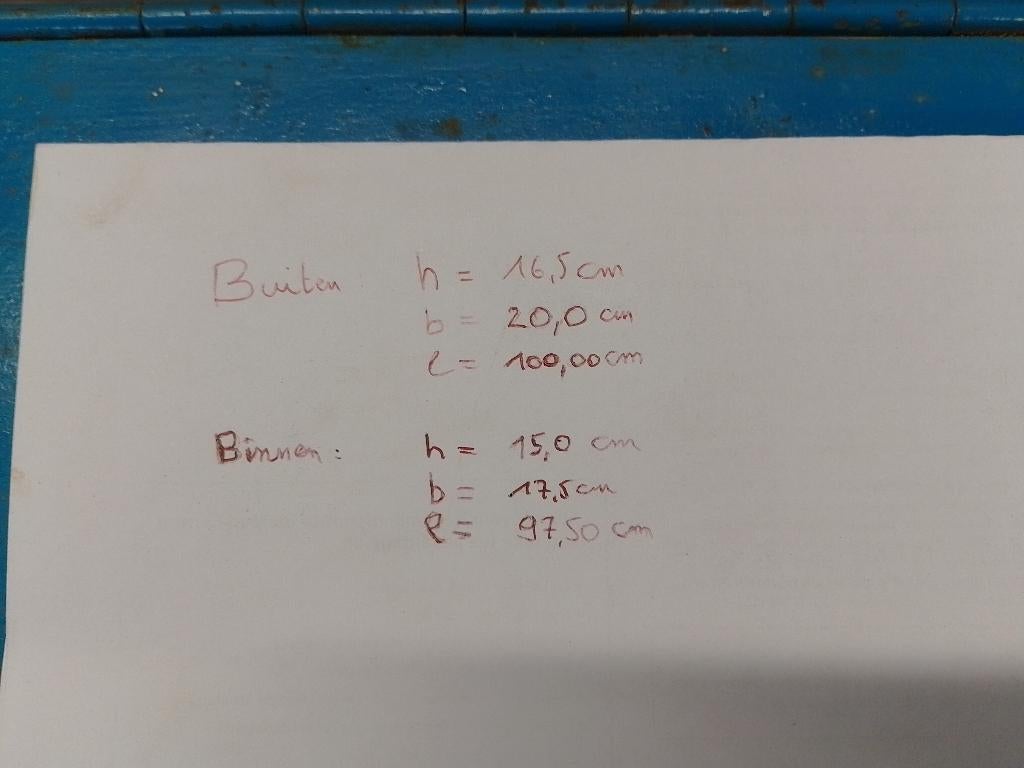 Buiten h = 16,5 cm
b = 20,0 cm
l = 100,00 cm
Binnen: h = 15,0 cm
b = 17,5 cm
l = 97,50 cm